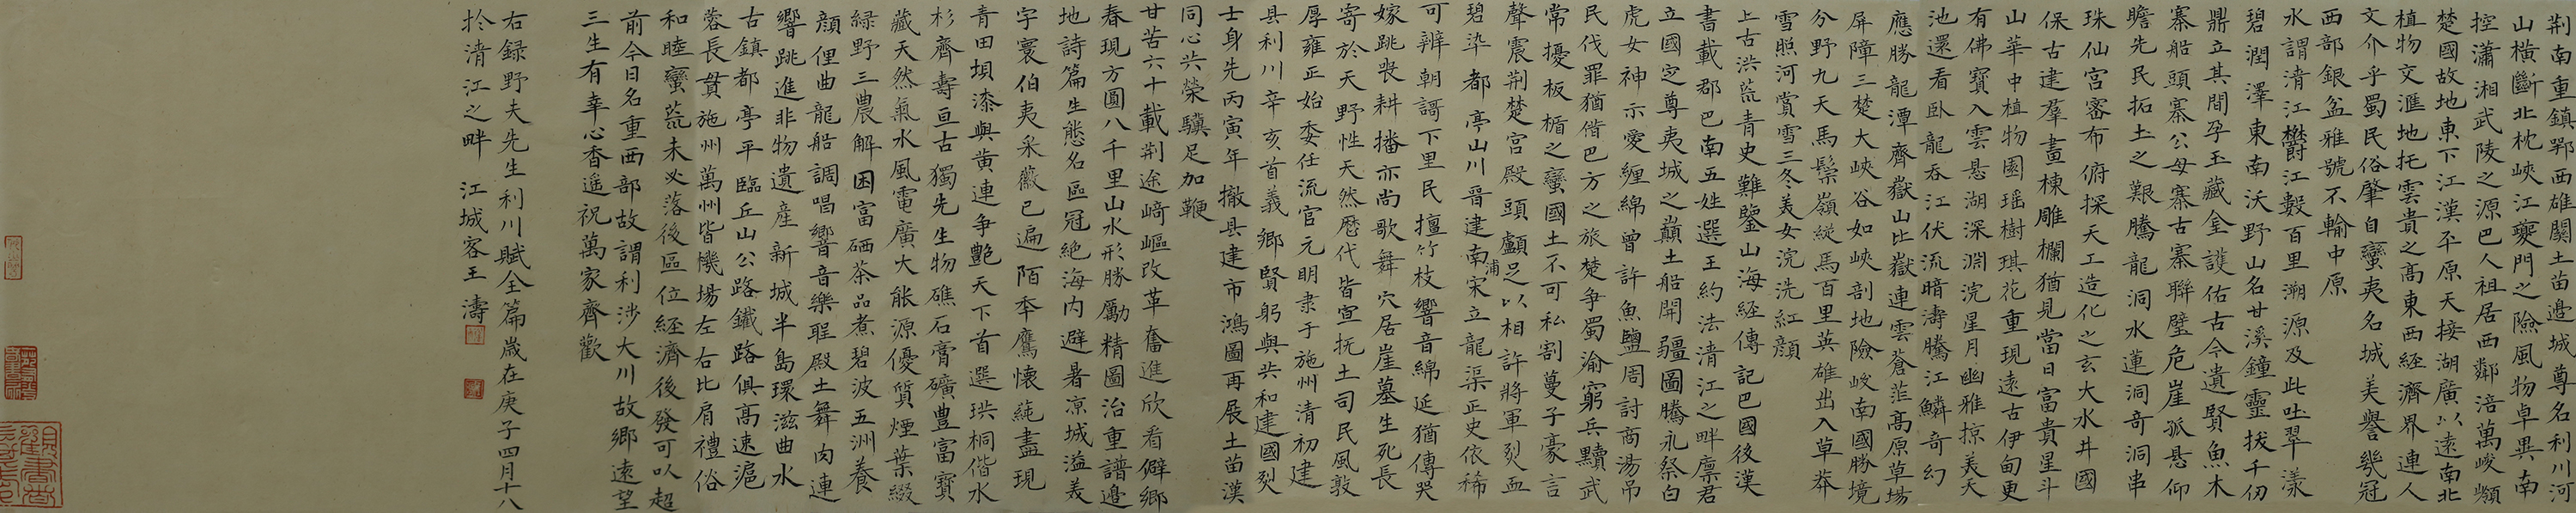 荆南重鎮鄂西雄關土苗邊城尊名利川河
山橫斷北枕峽江夔門之險風物卓異南
控瀟湘武陵之源巴人祖居西鄰涪萬峻嶺
楚國故地東下江漢平原天接湖廣以遠南北
植物文滙地托雲貴之高東西經濟界連人
文介乎蜀民俗肇自蠻夷名城美譽幾冠
西部銀盆雅號不輸中原
水謂清江欎江毂百里溯源及此吐翠漾
碧潤澤東南沃野山名甘溪鐘靈拔千仞
鼎立其間孕玉藏金護佑古今遺賢魚木
寨船頭寨公母寨古寨聯璧危崖孤悬仰
瞻先民拓土之艱騰龍洞水蓮洞奇洞串
珠仙宫審布俯探天工造化之玄大水井國
保古建羣畫棟雕欄猶見當日富貴星斗
山華中植物園瑶樹琪花重現遠古伊甸更
有佛寶入雲悬湖深渊浣星月幽雅掠美天
池還看卧龍吞江伏流暗濤騰江鱗奇幻
應勝龍潭齊嶽山比嶽連雲蒼茫高原草場
屏障三楚大峽谷如峽剖地險峻南國勝境
分野九天馬鬃嶺縱馬百里英雄出入草莽
雪照河賞雪三冬美女浣洗紅顔
上古洪荒青史難鑒山海經傳記巴國後漢
書載郡巴南五姓選王約法清江之畔廪君
立國定尊夷城之巔土船開疆圖騰礼祭白
虎女神示愛纏綿曾許魚鹽周討商湯吊
民伐罪猶偕巴方之旅楚争蜀渝窮兵黷武
常擾板楯之蠻國土不可私割蔓子豪言
聲震荆楚宫殿頭顱足以相許將軍烈血
碧染都亭山川晋建南浦宋立龍渠正史依稀
可辨朝謌下里民擅竹枝響音綿延猶傳哭
嫁跳丧耕播亦尚歌舞穴居崖墓生死長
寄於天野性天然歷代皆宣抚土司民風敦
厚雍正始委任流官元明隶于施州清初建
县利川辛亥首義鄉賢躬與共和建國烈
士身先丙寅年撤县建市鴻圖再展土苗漢
同心共榮驥足加鞭
甘苦六十載荆途﨑嶇改革奮進欣看僻鄉
春現方圓八千里山水形勝勵精圖治重譜邊
地詩篇生態名區冠絶海内避暑凉城溢美
宇寰伯夷采薇已遍陌李鷹懷蒓盡現
青田埧漆與黄連争艶天下首選珙桐偕水
杉齊壽亘古獨先生物礁石膏礦豊富寶
藏天然氣水風電廣大能源優質煙葉綴
緑野三農解困富硒茶品煮碧波五洲養
顔俚曲龍船調唱響音樂聖殿土舞肉連
響跳進非物遺産新城半島環滋曲水
古鎮都亭平臨丘山公路鐵路俱高速滬
蓉長貫施州萬州皆機場左右比肩禮俗
和睦蠻荒未必落後區位經濟後發可以超
前今日名重西部故謂利涉大川故鄉遠望
三生有幸心香遥祝萬家齊歡
右録野夫先生利川賦全篇歲在庚子四月十八
於清江之畔 江城客王濤